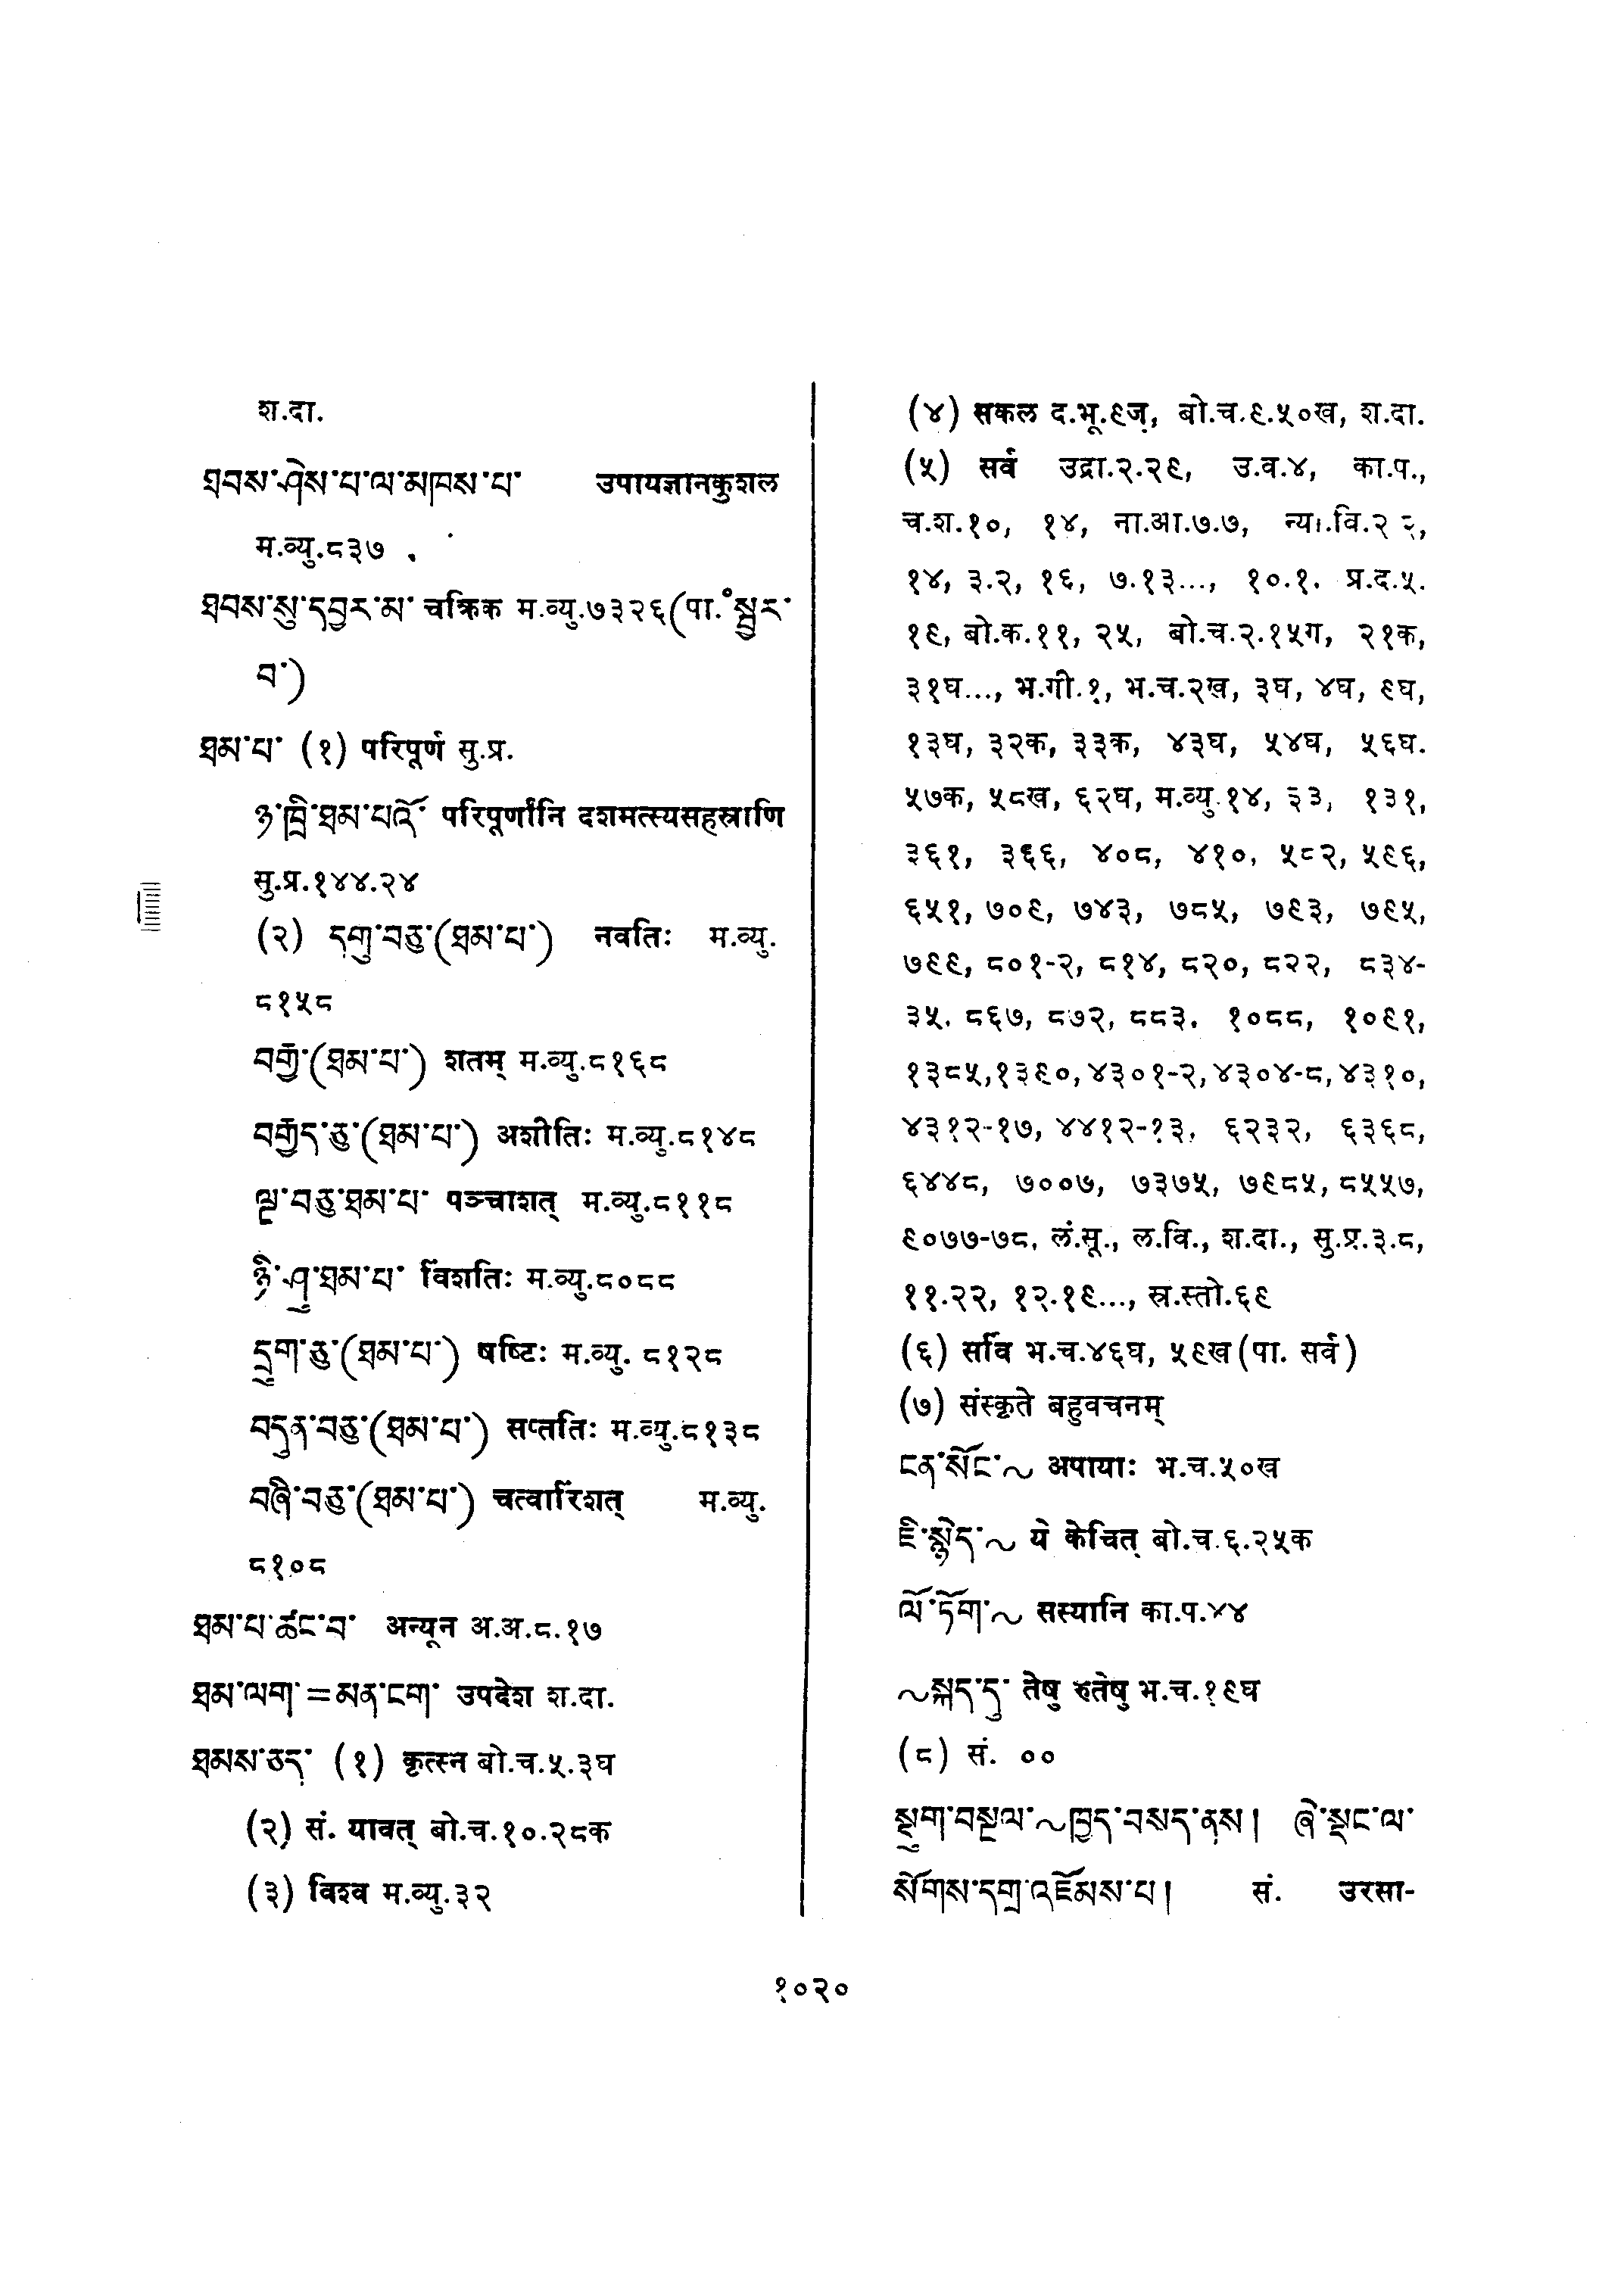 श.दा.
ཐབས་ཤེས་པ་ལ་མཁས་པ་ उपायज्ञानकुशल
म.व्यु.८३७
ཐབས་སུ་དབྱར་མ་ चक्रिक म.व्यु.७३२६(पा.°སྦྱར་
བ་)
ཐམ་པ་ (१) परिपूर्ण सु.प्र.
ཉ་ཁྲི་ཐམ་པའོ་ परिपूर्णानि दशमत्स्यसहस्राणि
सु.प्र.१४४.२४
(२) དགུ་བཅུ་(ཐམ་པ་) नवतिः म.व्यु.
८१५८
བརྒྱ་(ཐམ་པ་) शतम् म.व्यु.८१६८
བརྒྱད་ཅུ་(ཐམ་པ་) अशीतिः म.व्यु.८१४८
ལྔ་བཅུ་ཐམ་པ་ पञ्चाशत् म.व्यु.८११८
ཉི་ཤུ་ཐམ་པ་ विंशतिः म.व्यु.८०८८
དྲུག་ཅུ་(ཐམ་པ་) षष्टिः म.व्यु. ८१२८
བདུན་བཅུ་(ཐམ་པ་) सप्ततिः म.व्यु.८१३८
བཞི་བཅུ་(ཐམ་པ་) चत्वारिंशत् म.व्यु.
८१०८
ཐམ་པ་ཚང་བ་ अन्यून अ.अ.८.१७
ཐམ་ལག་=མན་ངག་ उपदेश श.दा.
ཐམས་ཅད་ (१) कृत्स्न बो.च.५.३घ
(२) सं. यावत् बो.च.१०.२८क
(३) विश्व म.व्यु.३२
(४) सकल द.भू.९ज, बो.च.९.५०ख, श.दा.
(५) सर्व उद्रा.२.२९, उ.व.४, का.प.,
च.श.१०, १४, ना.आ.७.७, न्या.वि.२
१४, ३.२, १६, ७.१३..., १०.१. प्र.द.५.
१९, बो.क.११, २५, बो.च.२.१५ग, २१क,
३१घ..., भ.गी.१, भ.च.२ख, ३घ, ४घ, ९घ,
१३घ, ३२क, ३३क, ४३घ, ५४घ, ५६घ.
५७क, ५८ख, ६२घ, म.व्यु.१४, ३३, १३१,
३६१, ३६६, ४०८, ४१०, ५८२, ५९६,
६५१, ७०९, ७४३, ७८५, ७९३, ७९५,
७९९, ८०१-२, ८१४, ८२०, ८२२, ८३४-
३५. ८६७, ८७२, ८८३. १०८८, १०९१,
१३८५,१३९०,४३०१-२,४३०४-८,४३१०,
४३१२-१७, ४४१२-१३. ६२३२, ६३६८,
६४४८, ७००७, ७३७५, ७९८५, ८५५७,
९०७७-७८, लं.सू., ल.वि., श.दा., सु.प्र.३.८,
११.२२, १२.१९..., स्र.स्तो.६९
(६) सर्वि भ.च.४६घ, ५९ख(पा. सर्व)
(७) संस्कृते बहुवचनम्
ངན་སོང་~ अपायाः भ.च.५०ख
ཇི་སྙེད་~ ये केचित् बो.च.६.२५क
ལོ་ཏོག་~ सस्यानि का.प.४४
~སྐད་དུ་ तेषु रुतेषु भ.च.१९घ
(८) सं. ००
སྡུག་བསྔལ་~ཁྱད་བསད་ནས། ཞེ་སྡང་ལ་
སོགས་དགྲ་འཇོམས་པ། सं. उरसा-
१०२०